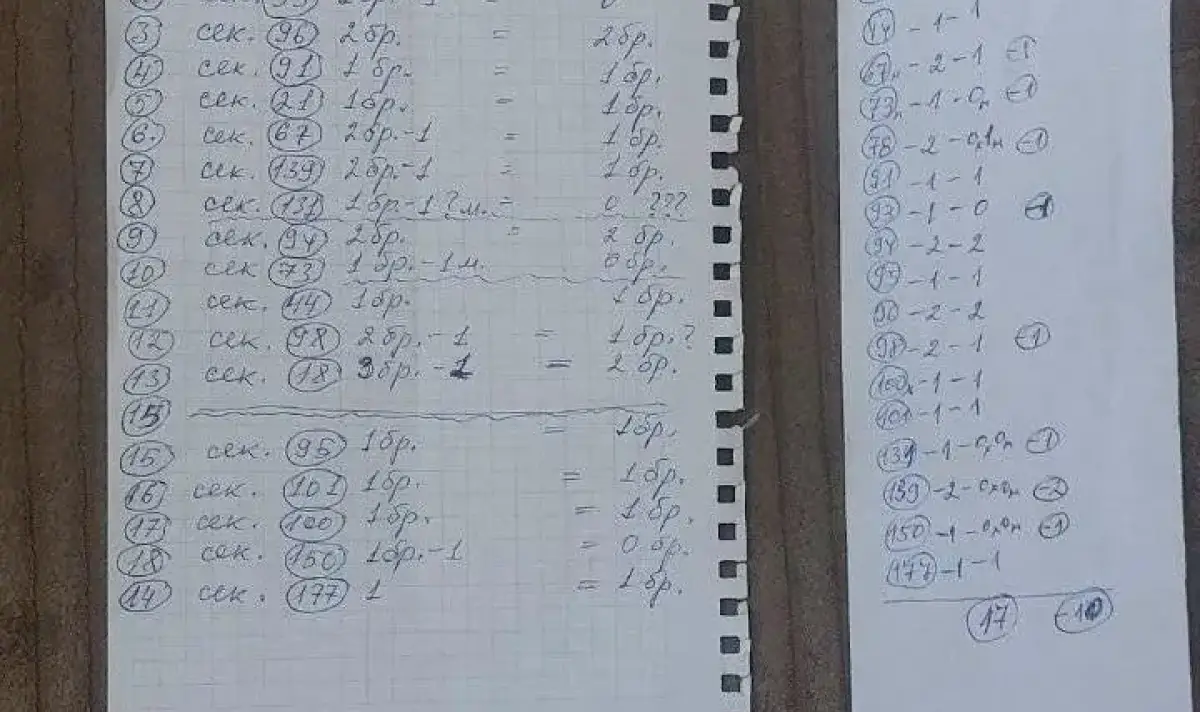 3 сек. 96 2бр. = 2бр.
4 сек. 91 1бр. = 1бр.
5 сек. 21 1бр. = 1бр.
6. сек. 67 2бр.-1 = 1бр.
7 сек. 139 2бр.-1 = 1бр.
8 сек. 131 1бр-1?м. = 0 ???
9 сек. 94 2бр. = 2бр.
10 сек 73 1бр.-1м. 0бр.
11 сек. 44 1бр. 1бр.
12 сек. 98 2бр.-1 = 1бр.?
13 сек. 18 3бр.-1 = 2бр.
15 сек. 95 1бр. = 1бр.
16 сек. 101 1бр. = 1бр.
17 сек. 100 1бр. = 1бр.
18 сек. 150 1бр.-1 = 0бр.
14 сек. 177 1 = 1бр.
44 - 1 - 1
67 - 2 - 1 -1
73 - 1 - 0 -1
78 - 2 -1
91 - 1 - 1
93 - 1 - 0 -1
94 - 2 - 2
- 1 - 1
96 - 2 - 2
98 - 2 - 1 -1
100 - 1 - 1
101 - 1 - 1
131 - 1 -1
139 - 2 -2
150 - 1 -1
177 - 1 - 1
17 -10